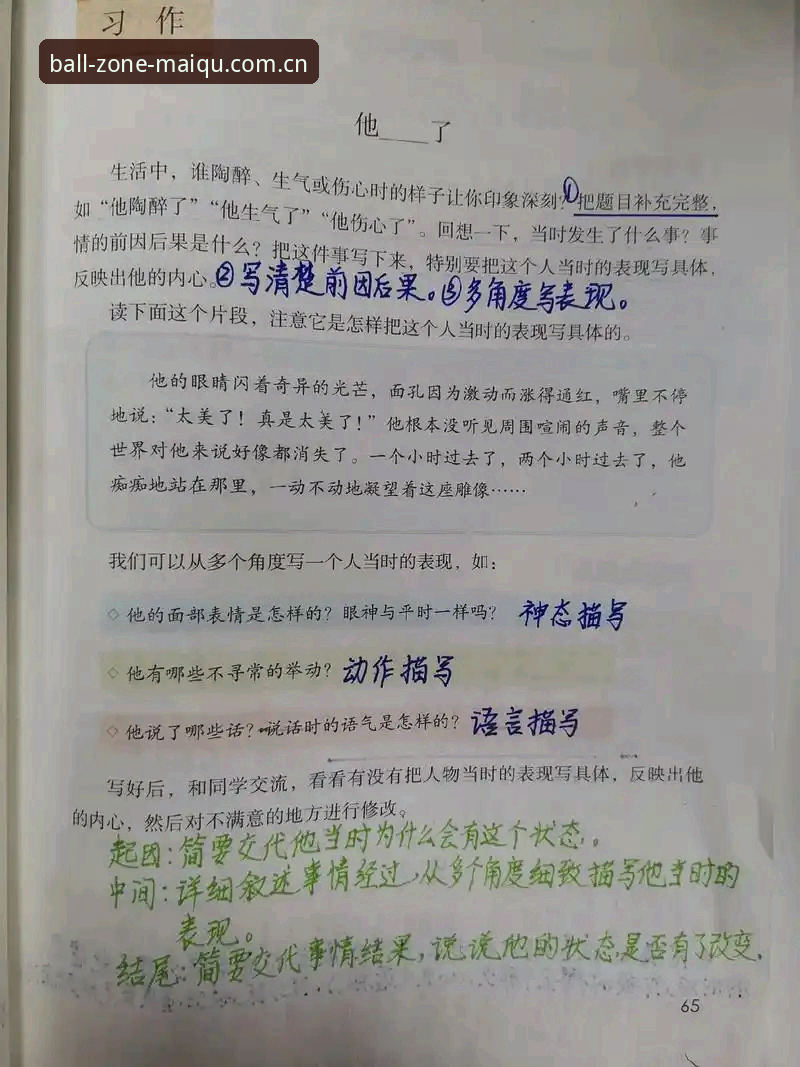 习 作
ball-zone-maiqu.com.cn
他____了
生活中，谁陶醉、生气或伤心时的样子让你印象深刻？①把题目补充完整，
如“他陶醉了”“他生气了”“他伤心了”。回想一下，当时发生了什么事？事
情的前因后果是什么？把这件事写下来，特别要把这个人当时的表现写具体，
反映出他的内心。②写清楚前因后果。③多角度写表现。
读下面这个片段，注意它是怎样把这个人当时的表现写具体的。
他的眼睛闪着奇异的光芒，面孔因为激动而涨得通红，嘴里不停
地说：“太美了！真是太美了！”他根本没听见周围喧闹的声音，整个
世界对他来说好像都消失了。一个小时过去了，两个小时过去了，他
痴痴地站在那里，一动不动地凝望着这座雕像……
我们可以从多个角度写一个人当时的表现，如：
◇ 他的面部表情是怎样的？眼神与平时一样吗？ 神态描写
◇ 他有哪些不寻常的举动？ 动作描写
◇ 他说了哪些话？说话时的语气是怎样的？ 语言描写
写好后，和同学交流，看看有没有把人物当时的表现写具体，反映出他
的内心，然后对不满意的地方进行修改。
起因：简要交代他当时为什么会有这个状态。
中间：详细叙述事情经过，从多个角度细致描写他当时的
表现。
结尾：简要交代事情结果，说说他的状态是否有了改变。
65